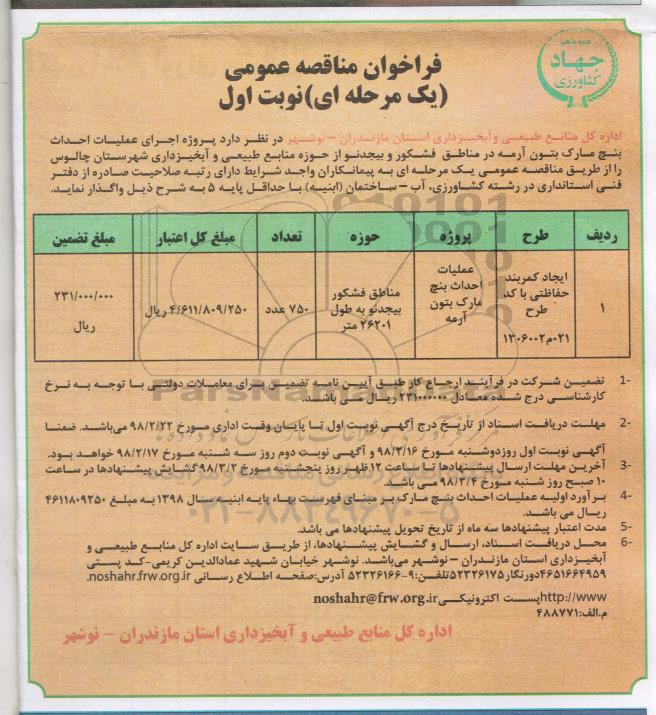 همه با هم
جهاد
کشاورزی
فراخوان مناقصه عمومی
(یک مرحله ای) نوبت اول
اداره کل منابع طبیعی و آبخیزداری استان مازندران – نوشهر در نظر دارد پروژه اجرای عملیات احداث
بنچ مارک بتون آرمه در مناطق فشکور و بیجدنو از حوزه منابع طبیعی و آبخیزداری شهرستان چالوس
را از طریق مناقصه عمومی یک مرحله ای به پیمانکاران واجد شرایط دارای رتبه صلاحیت صادره از دفتر
فنی استانداری در رشته کشاورزی، آب – ساختمان (ابنیه) با حداقل پایه ۵ به شرح ذیل واگذار نماید.
ردیف طرح پروژه حوزه تعداد مبلغ کل اعتبار مبلغ تضمین
۱ ایجاد کمربند حفاظتی با کد طرح ۱۳۰۶۰۰۲م۰۲۱ عملیات احداث بنچ مارک بتون آرمه مناطق فشکور بیجدنو به طول ۲۶۲۰۱ متر ۷۵۰ عدد ۴/۶۱۱/۸۰۹/۲۵۰ ریال ۲۳۱/۰۰۰/۰۰۰ ریال
1- تضمین شرکت در فرآیند ارجاع کار طبق آیین نامه تضمین برای معاملات دولتی با توجه به نرخ
کارشناسی درج شده معادل ۲۳۱۰۰۰۰۰۰ ریال می باشد.
2- مهلت دریافت اسناد از تاریخ درج آگهی نوبت اول تا پایان وقت اداری مورخ ۹۸/۲/۲۲ می‌باشد. ضمنا
آگهی نوبت اول روزدوشنبه مورخ ۹۸/۲/۱۶ و آگهی نوبت دوم روز سه شنبه مورخ ۹۸/۲/۱۷ خواهد بود.
3- آخرین مهلت ارسال پیشنهادها تا ساعت ۱۲ ظهر روز پنجشنبه مورخ ۹۸/۳/۲ گشایش پیشنهادها در ساعت
۱۰ صبح روز شنبه مورخ ۹۸/۳/۴ می باشد.
4- برآورد اولیه عملیات احداث بنچ مارک بر مبنای فهرست بهاء پایه ابنیه سال ۱۳۹۸ به مبلغ ۴۶۱۱۸۰۹۲۵۰
ریال می باشد.
5- مدت اعتبار پیشنهادها سه ماه از تاریخ تحویل پیشنهادها می باشد.
6- محل دریافت اسناد، ارسال و گشایش پیشنهادها، از طریق سایت اداره کل منابع طبیعی و
آبخیزداری استان مازندران – نوشهر می‌باشد. نوشهر خیابان شهید عمادالدین کریمی-کد پستی
۴۶۵۱۶۶۴۹۵۹دورنگار۵۲۳۲۶۱۷۵تلفن:۹-۵۲۳۲۶۱۶۶ آدرس:صفحه اطلاع رسانی noshahr.frw.org.ir.
http://wwwپست اکترونیکیnoshahr@frw.org.ir
م.الف:۴۸۸۷۷۱
اداره کل منابع طبیعی و آبخیزداری استان مازندران – نوشهر
ParsNamadData
۰۲۱-۸۸۳۴۹۶۷۰-۵